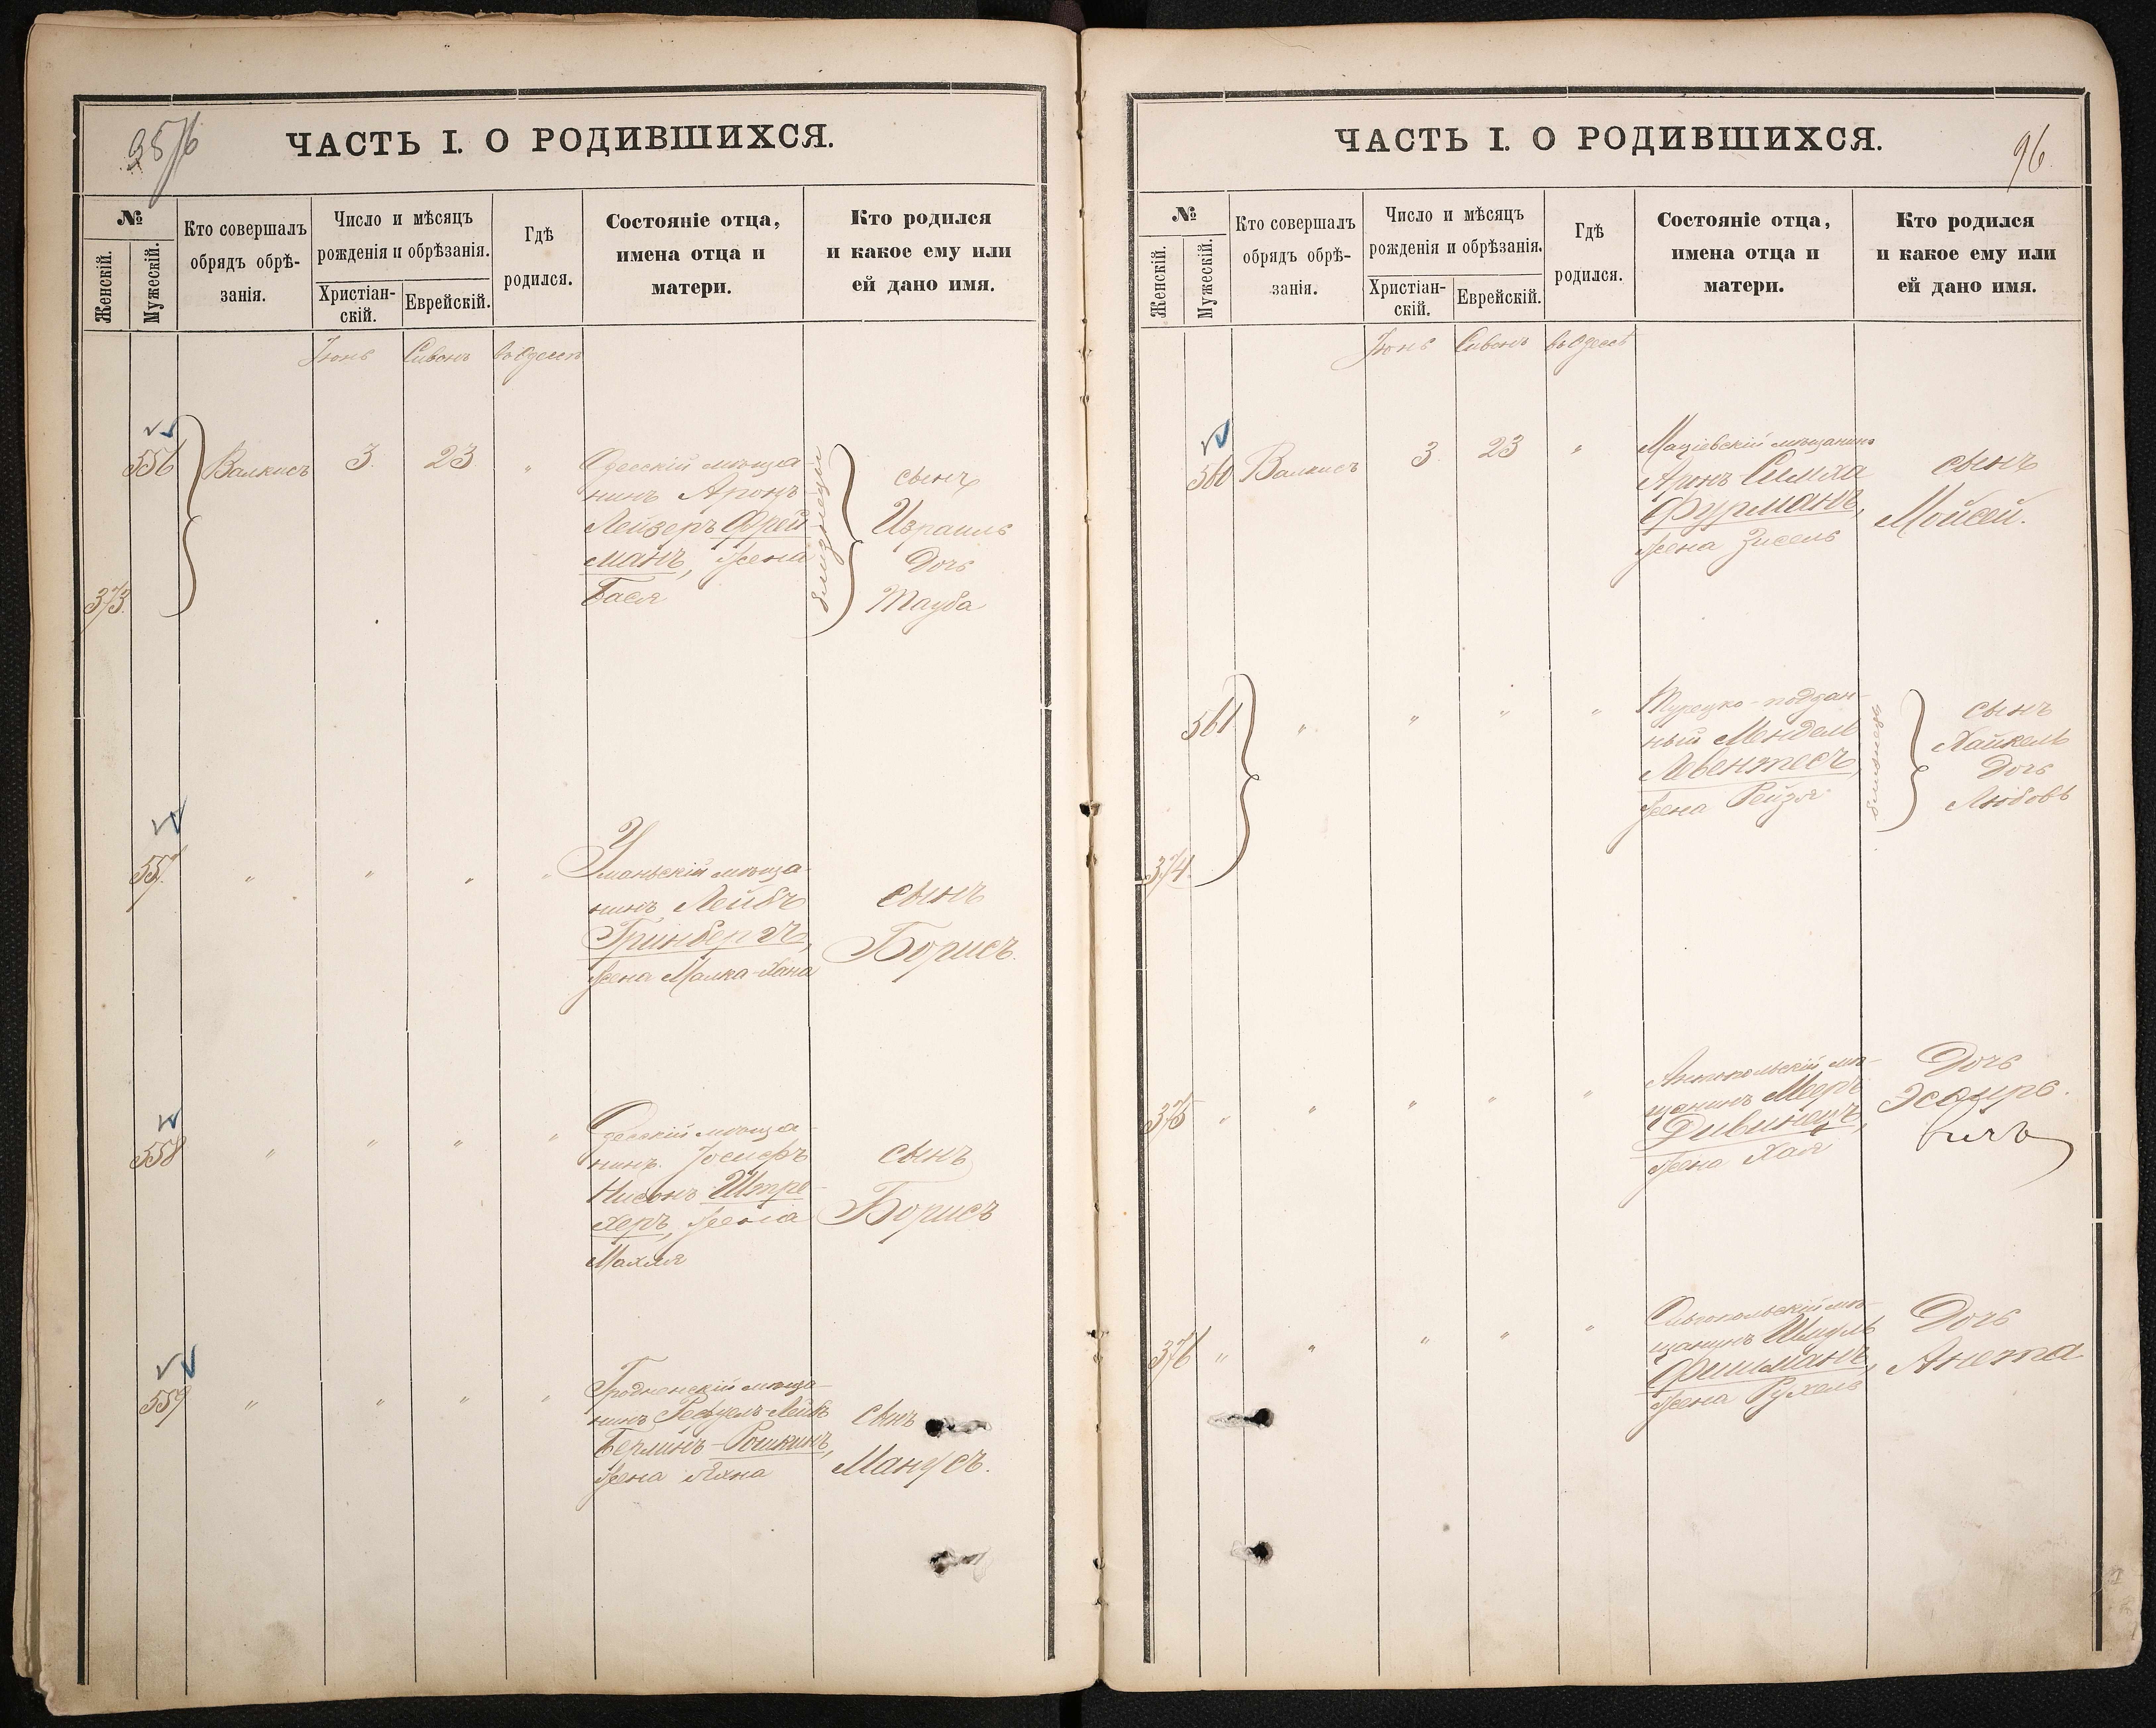 ЧАСТЬ I. О РОДИВШИХСЯ.
№
Женскій.
Мужескій.
Кто совершалъ
обрядъ обрѣ-
занія.
Число и мѣсяцъ
рожденія и обрѣзанія.
Христіан-
скій.
Еврейскій.
Гдѣ
родился.
Состояніе отца,
имена отца и
матери.
Кто родился
и какое ему или
ей дано имя.
Іюнь Сивонъ въ Одессѣ
556 Валкисъ 3. 23 "
373.
Одесскій мѣща-
нинъ Аронъ-
Лейзеръ Фрей
манъ, жена
Бася
близнецы
сынъ
Израиль
Дочь
Тауба
557. " " " "
Уманьскій мѣща-
нинъ Лейбъ
Гринбергъ,
жена Малка-Хана
сынъ
Борисъ.
558 " " " "
Одесскій мѣща-
нинъ Іосифъ
Нисонъ Штре-
херъ, жена
Махля
сынъ
Борисъ
559 " " " "
Гродненскій мѣща-
нинъ Рефуель-Лейбъ
Берлинъ-Рошкинъ,
жена
сынъ
Манусъ.
ЧАСТЬ I. О РОДИВШИХСЯ.
96.
№
Женскій.
Мужескій.
Кто совершалъ
обрядъ обрѣ-
занія.
Число и мѣсяцъ
рожденія и обрѣзанія.
Христіан-
скій.
Еврейскій.
Гдѣ
родился.
Состояніе отца,
имена отца и
матери.
Кто родился
и какое ему или
ей дано имя.
Іюнь Сивонъ въ Одессѣ
560 Валкисъ 3 23 "
Маціевскій мѣщанинъ
Аронъ-Симха
Фурманъ,
жена Зисель
сынъ
Мойсей.
561 " " " "
374.
Турецко-поддан-
ный Мендель
Левентесъ,
жена Рейзя
близнецы
сынъ
Хайкель
Дочь
Любовь
375 " " " " "
мѣ-
щанинъ Мееръ
Дивинецъ,
жена Хая
Дочь
Эсѳирь.
376 " " " " "
Ольвіопольскій мѣ-
щанинъ Шмуль
Фишманъ,
жена Рухель
Дочь
Анета